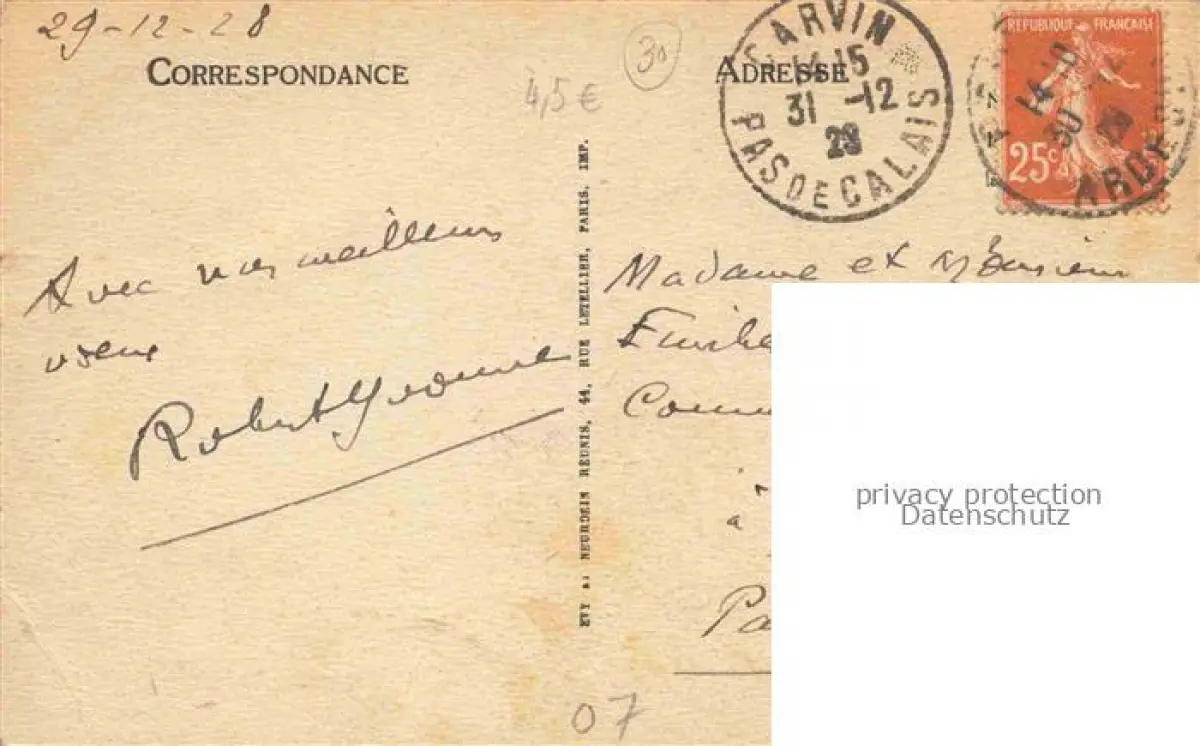 29-12-28
CORRESPONDANCE
4,5€
30
ADRESSE
CARVIN
14 15
31 -12
28
PAS DE CALAIS
REPUBLIQUE FRANÇAISE
25c
14
30
12
28
ARDE
Avec nos meilleurs
vœux
Robert Yvonne
Madame et Monsieur
à
Pa
LEVY et NEURDEIN RÉUNIS, 44, RUE LETELLIER, PARIS. IMP.
07
privacy protection
Datenschutz